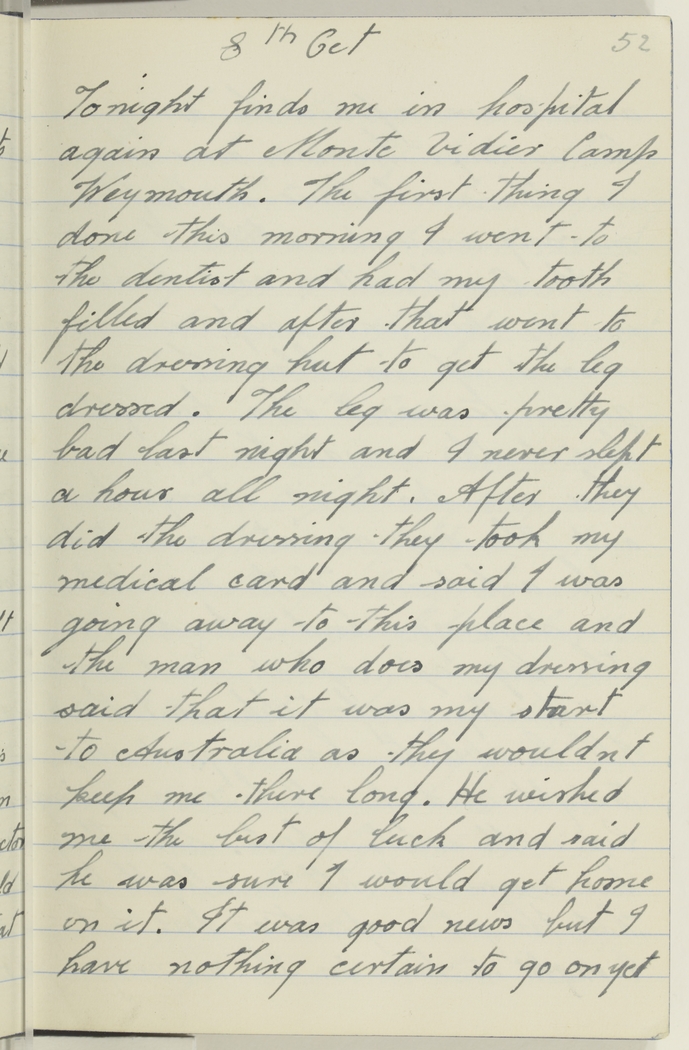 8th Oct
52
Tonight finds me in hospital
again at Monte Vidier Camp
Weymouth. The first thing I
done this morning I went to
the dentist and had my tooth
filled and after that went to
the dressing hut to get the leg
dressed. The leg was pretty
bad last night and I never slept
a hour all night. After they
did the dressing they took my
medical card and said I was
going away to this place and
the man who does my dressing
said that it was my start
to Australia as they wouldnt
keep me there long. He wished
me the best of luck and said
he was sure I would get home
on it. It was good news but I
have nothing certain to go on yet